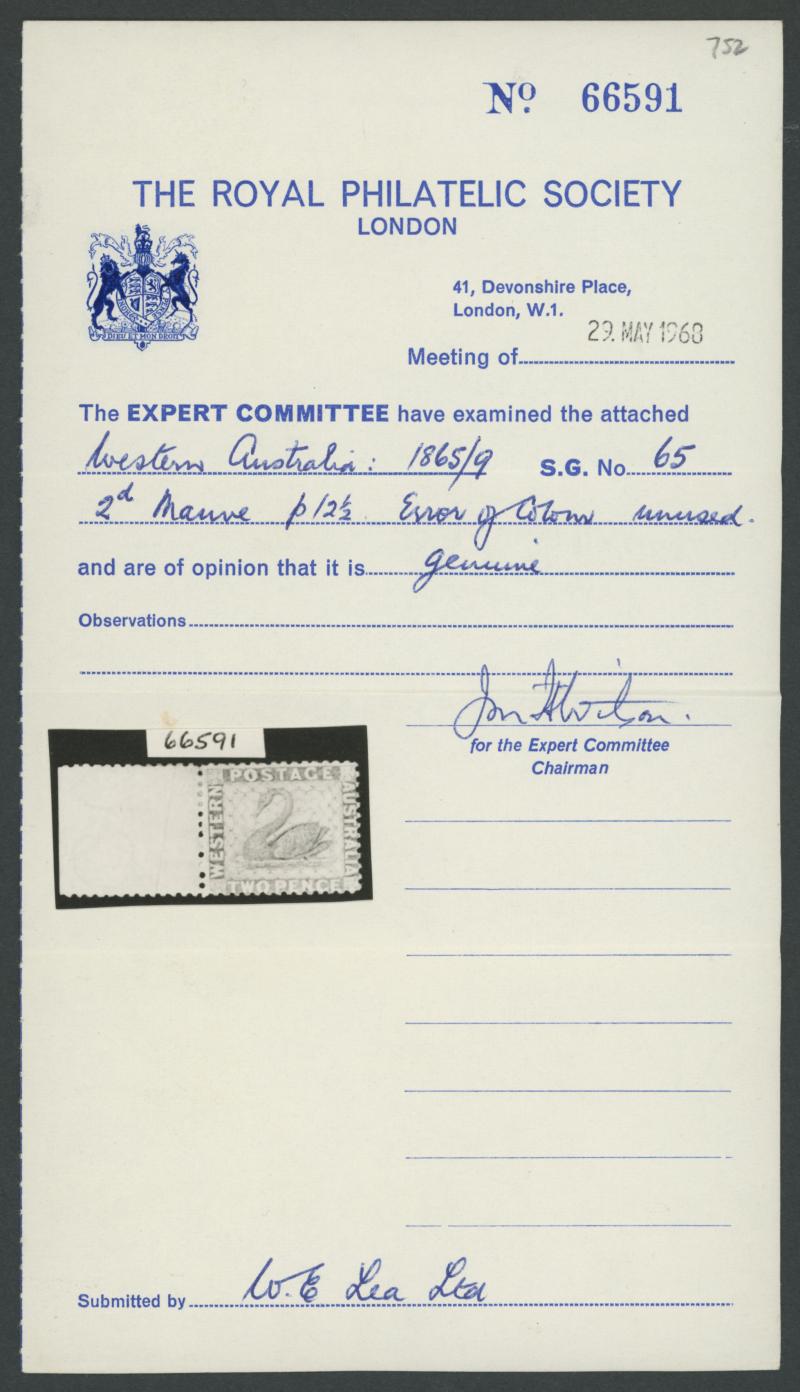 752
No. 66591
THE ROYAL PHILATELIC SOCIETY
LONDON
DIEU ET MON DROIT
41, Devonshire Place,
London, W.1.
29. MAY 1968
Meeting of
The EXPERT COMMITTEE have examined the attached
Western Australia: 1865/9 S.G. No. 65
2d Mauve p12½ Error of Colour unused.
and are of opinion that it is genuine
Observations
for the Expert Committee
Chairman
66591
POSTAGE
WESTERN
AUSTRALIA
TWO PENCE
Submitted by W.E Lea Ltd